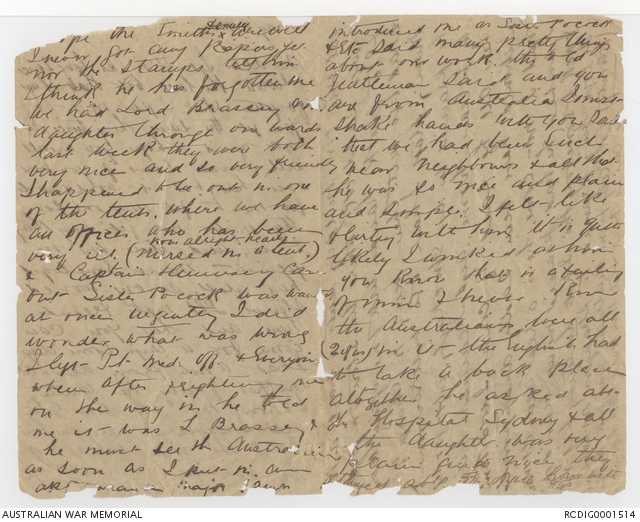 hope the Smiths & Farewell
I never got any papers yet
nor the Stamps tell him
I think he has forgotten me
We had Lord Brassey &
daughter through our wards
last week they were both
very nice and so very friendly
I happened to be out in one
of the tents, where we have
an officer who has been
now alright nearly
very ill (nursed in a tent)
& Captain Hennessy came
out Sister Pocock was wanted
at once urgently I did
wonder what was wrong
I left Pt Med. Off. & Everyone
when after frightening me
on the way in he told
me it was L Brassey &
he must see the Australian
as soon as I put in an
introduced me as Sister Pocock
& etc Said many pretty things
about our work. the old
gentleman Said and you
are from Australia I must
Shake hands with you Said
that we had been such
near neighbours & all that
he was so nice and plain
and Simple. I felt like
flirting with him it is quite
likely I winked at him
you know that is a failing
of mine I never knew
the Australians were all
(2 of us) in it the English had
to take a back place
altogether he asked abt
the Hospital Sydney & all
the daughter was very
plain quite nice they
AUSTRALIAN WAR MEMORIAL
RCDIG0001514